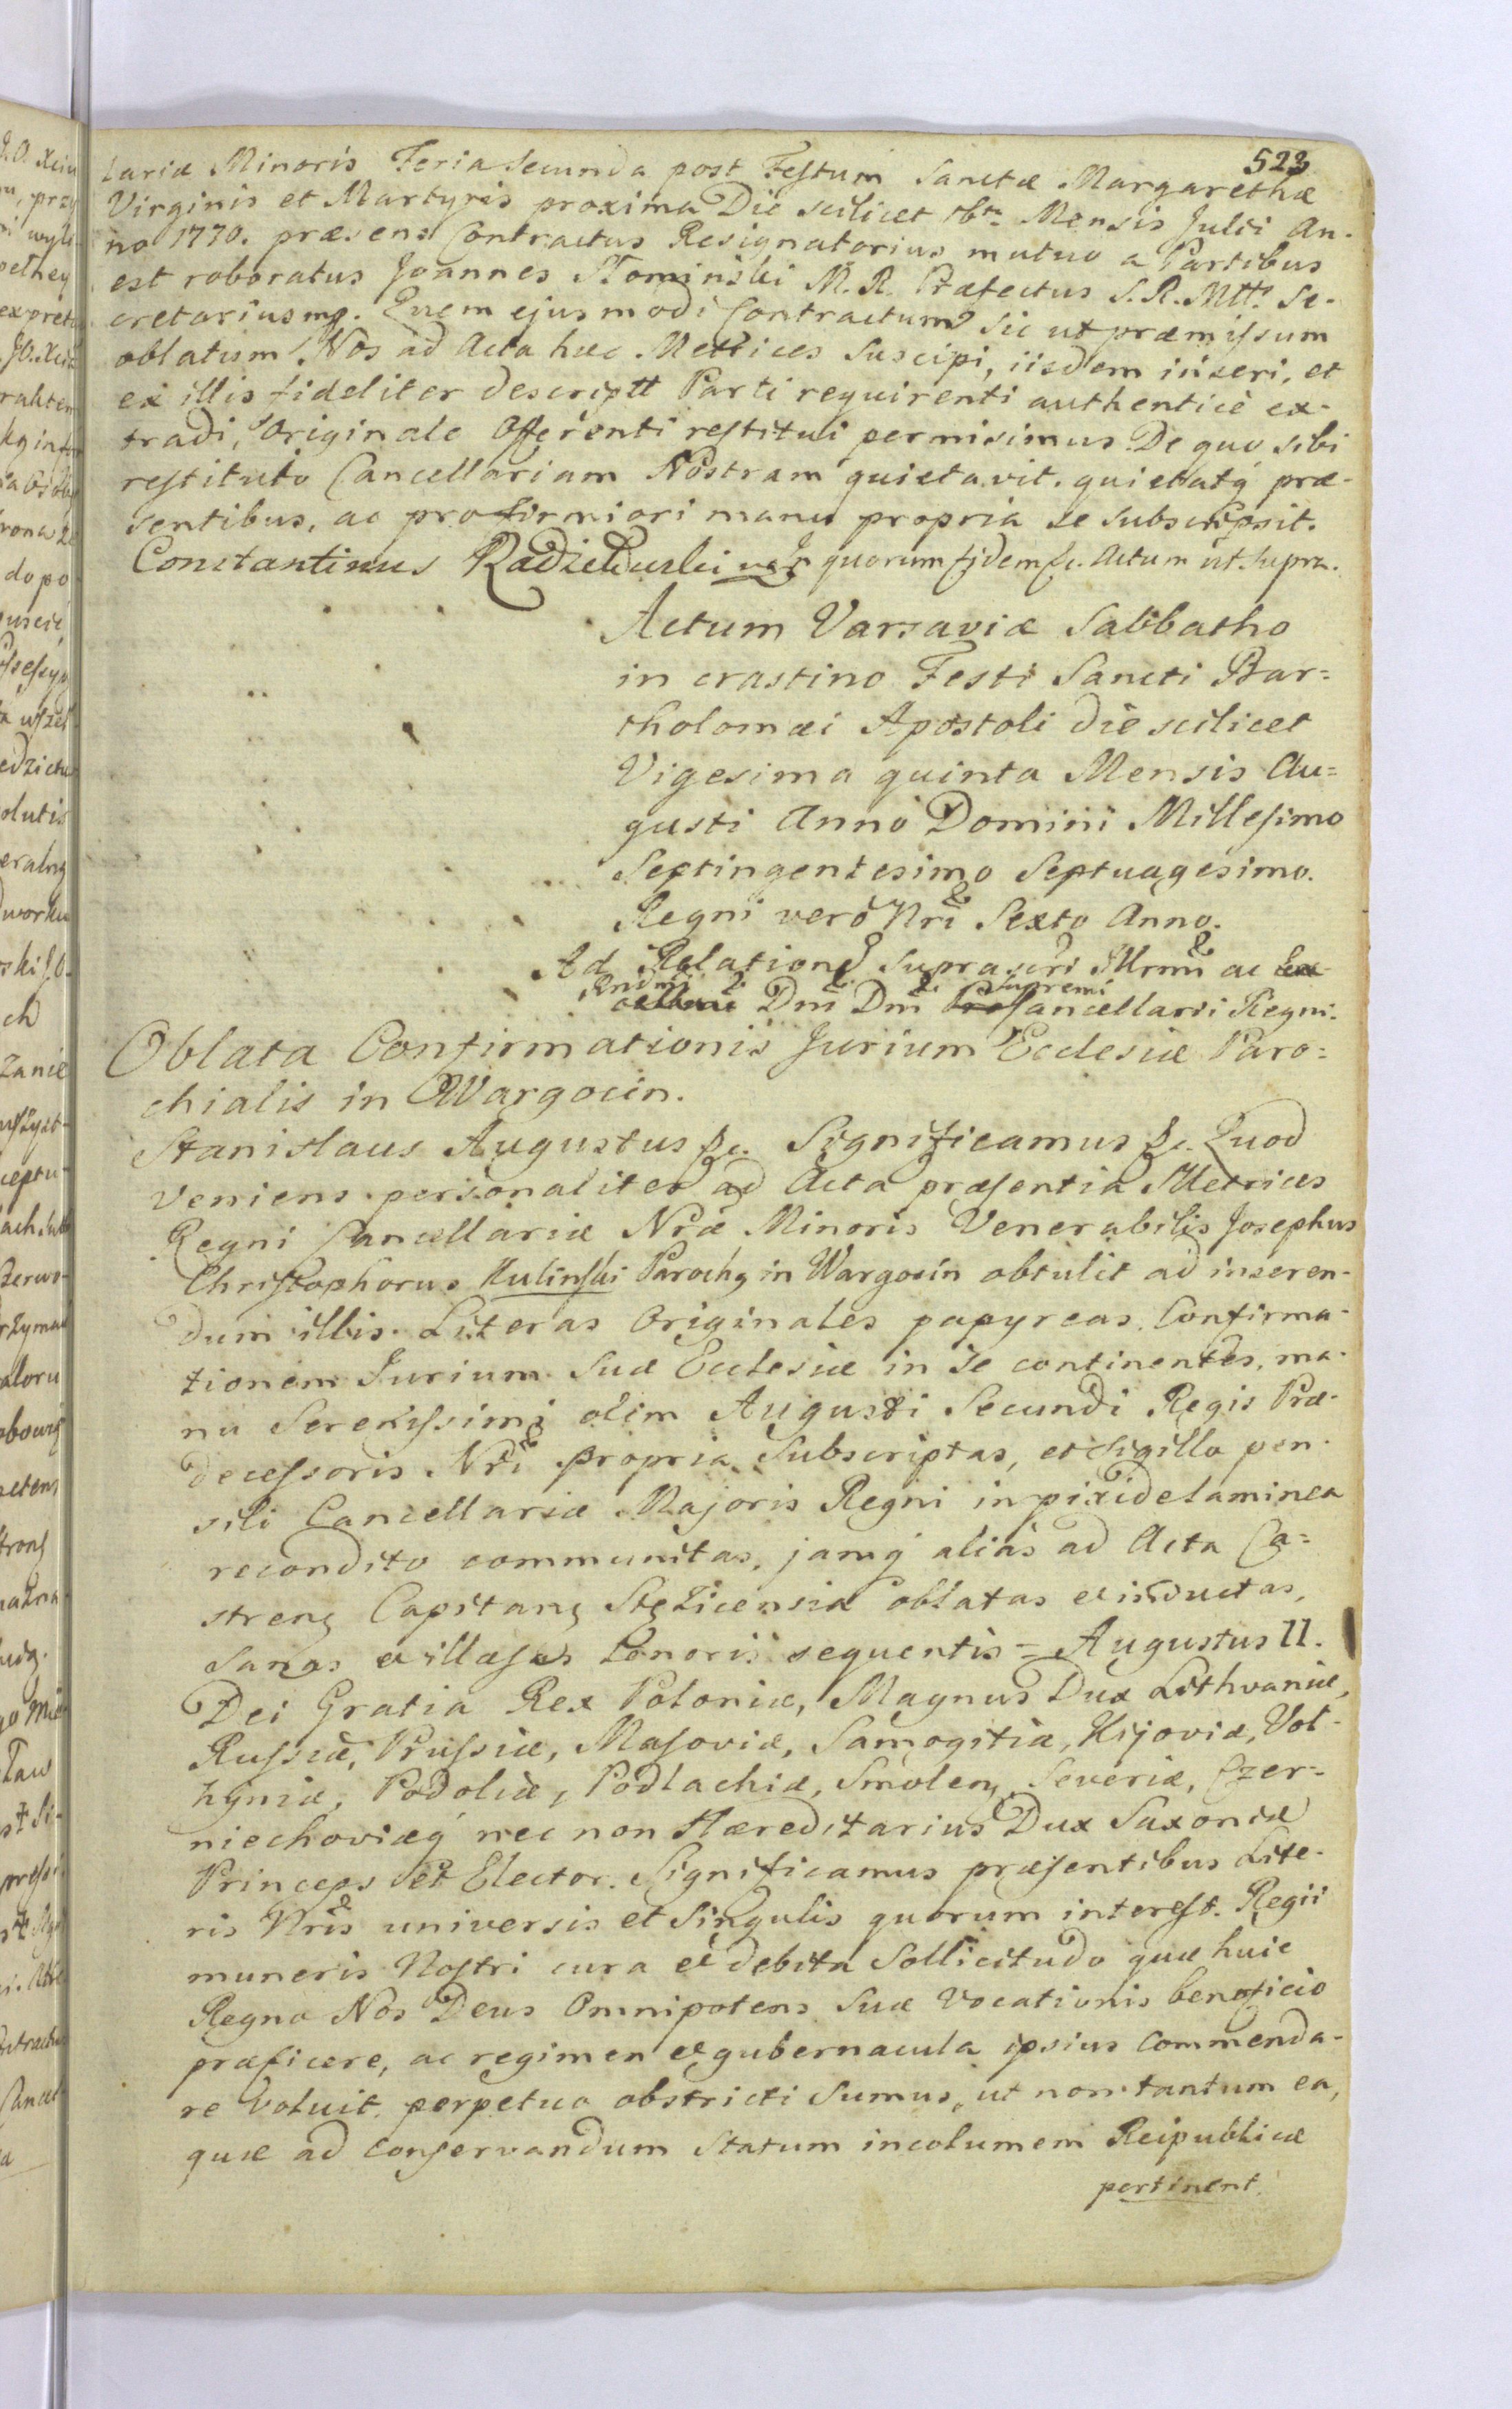 523
lariæ Minoris Feria Secunda post Festum Sanctæ Margarethæ
Virginis et Martyris proxima Die scilicet Mensis Julii An-
no 1770. præsens Contractus Resignatorius mutuo a Partibus
est roboratus Joannes Słomiński M. R. Præfectus S. R. Mttis Se-
cretarius mp. Quem ejusmodi Contractum sic ut præmissum
oblatum Nos ad Acta hæc Metrices suscipi, iisdem inseri, et
ex illis fideliter descriptt Parti requirenti authenticè ex-
tradi, Originale Offerenti restitui permisimus. De quo sibi
restituto Cancellariam Nostram quietavit. quietatq præ-
sentibus, ac pro firmiori manu propria se subscripsit.
Constantinus In quorum fidem &c. Actum ut supra.
Actum Varsaviæ Sabbatho
in crastino Festi Sancti Bar=
tholomæi Apostoli die scilicet
Vigesima quinta Mensis Au=
gusti Anno Domini Millesimo
Septingentesimo Septuagesimo.
Regni verò Nri Sexto Anno.
Ad Relationem suprascri Illrmi ac Ex
Rndmi Dni Dni Pro Supremi Cancellarii Regni.
Oblata Confirmationis Jurium Ecclesiæ Paro=
chialis in Wargocin.
Stanislaus Augustus &c. Significamus &c. Quod
veniens personaliter ad Acta præsentia Metrices
Regni Cancellariæ Nræ Minoris Venerabilis Josephus
Christophorus Kulinski Parochq in Wargocin obtulit ad inseren-
dum illis Literas Originales papyreas Confirma-
tionem Jurium suæ Ecclesiæ in se continentes, ma-
nu Serenissimi olim Augusti Secundi Regis Præ-
decessoris Nri propria subscriptas, et sigillo pen-
sili Cancellariæ Majoris Regni in pixide laminea
recondito communitas, jamq alias ad Acta Ca=
streng Capitang Stęzicensia oblatas et inductas,
sanas et illæsas tenoris sequentis = Augustus II.
Dei Gratia Rex Poloniæ, Magnus Dux Lithvaniæ,
Russiæ, Prussiæ, Masoviæ, Samogitiæ, Kijoviæ, Vol-
hyniæ, Podoliæ, Podlachiæ, Smoleng, Severiæ, Czer-
niechoviæq nec non Hæreditarius Dux Saxoniæ
Princeps et Elector. Significamus præsentibus Lite-
ris Nris universis et singulis quorum interest. Regii
muneris Nostri cura et debita sollicitudo quæ huic
Regno Nos Deus Omnipotens suæ Vocationis beneficio
præficere, ac regimen et gubernacula ipsius Commenda-
re voluit. perpetuo obstricti sumus, ut non tantum ea,
quæ ad conservandum Statum incolumem Reipublicæ
pertinent